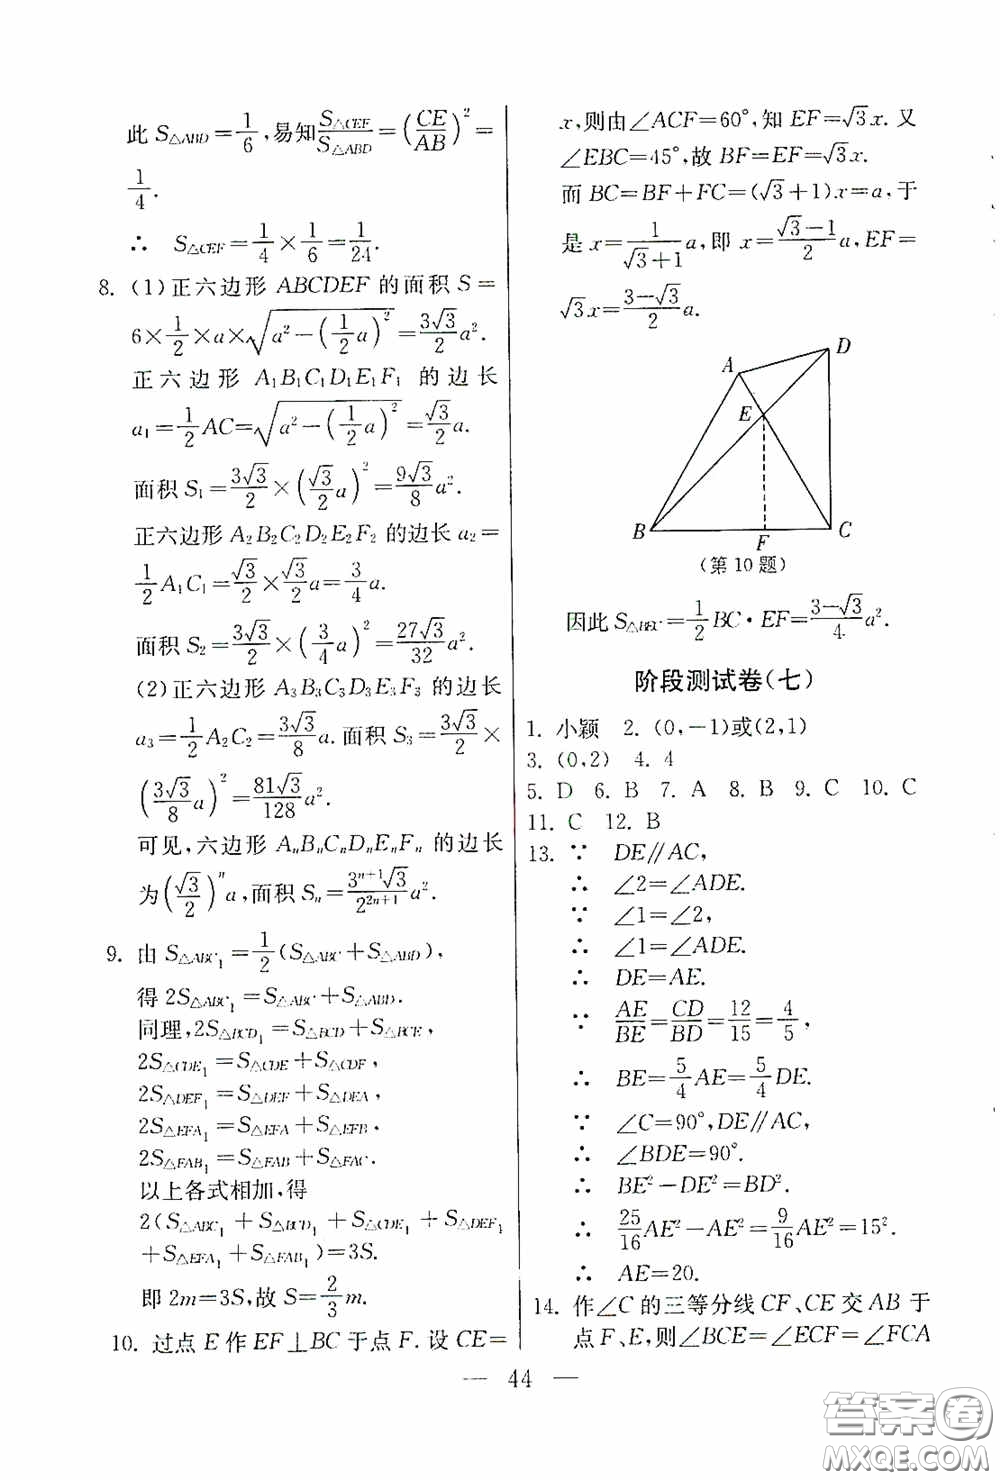 此 S△ABD=1/6,易知S△CEF/S△ABD=(CE/AB)²=
1/4.
∴ S△CEF=1/4×1/6=1/24.
8. (1)正六边形 ABCDEF 的面积 S=
6×1/2×a×√(a²-(1/2a)²)=3√3/2a².
正六边形 A₁B₁C₁D₁E₁F₁ 的边长
a₁=1/2AC=√(a²-(1/2a)²)=√3/2a.
面积 S₁=3√3/2×(√3/2a)²=9√3/8a².
正六边形 A₂B₂C₂D₂E₂F₂ 的边长 a₂=
1/2A₁C₁=√3/2×√3/2a=3/4a.
面积 S₂=3√3/2×(3/4a)²=27√3/32a².
(2)正六边形 A₃B₃C₃D₃E₃F₃ 的边长
a₃=1/2A₂C₂=3√3/8a. 面积 S₃=3√3/2×
(3√3/8a)²=81√3/128a².
可见,六边形 AₙBₙCₙDₙEₙFₙ 的边长
为(√3/2)ⁿa,面积 Sₙ=3ⁿ⁺¹√3/2²ⁿ⁺¹a².
9. 由 S△ABC₁=1/2(S△ABC+S△ABD),
得 2S△ABC₁=S△ABC+S△ABD.
同理,2S△BCD₁=S△BCD+S△BCE,
2S△CDE₁=S△CDE+S△CDF,
2S△DEF₁=S△DEF+S△DEA,
2S△EFA₁=S△EFA+S△EFB,
2S△FAB₁=S△FAB+S△FAC.
以上各式相加,得
2(S△ABC₁+S△BCD₁+S△CDE₁+S△DEF₁
+S△EFA₁+S△FAB₁)=3S.
即 2m=3S,故 S=2/3m.
10. 过点 E 作 EF⊥BC 于点 F. 设 CE=
x,则由∠ACF=60°,知 EF=√3x. 又
∠EBC=45°,故 BF=EF=√3x.
而 BC=BF+FC=(√3+1)x=a,于
是 x=1/(√3+1)a,即 x=(√3-1)/2a,EF=
√3x=(3-√3)/2a.
D
A
E
B
F
C
(第 10 题)
因此 S△BEC=1/2BC·EF=(3-√3)/4a².
阶段测试卷(七)
1. 小颖 2. (0,-1)或(2,1)
3. (0,2) 4. 4
5. D 6. B 7. A 8. B 9. C 10. C
11. C 12. B
13. ∵ DE∥AC,
∴ ∠2=∠ADE.
∵ ∠1=∠2,
∴ ∠1=∠ADE.
∴ DE=AE.
∵ AE/BE=CD/BD=12/15=4/5,
∴ BE=5/4AE=5/4DE.
∵ ∠C=90°,DE∥AC,
∴ ∠BDE=90°.
∴ BE²-DE²=BD².
∴ 25/16AE²-AE²=9/16AE²=15².
∴ AE=20.
14. 作∠C 的三等分线 CF、CE 交 AB 于
点 F、E,则∠BCE=∠ECF=∠FCA
— 44 —
答案卷
MXQE.COM